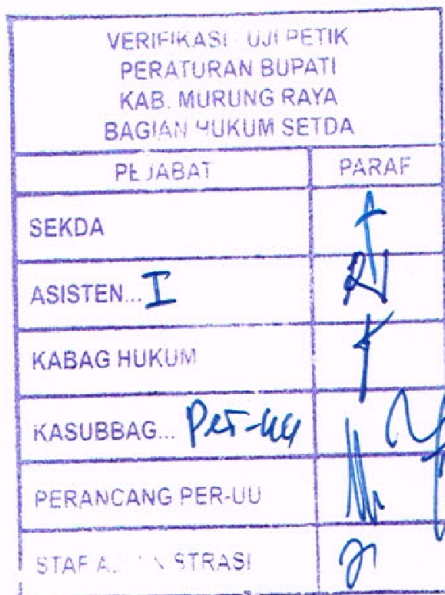 VERIFIKASI UJI PETIK
PERATURAN BUPATI
KAB. MURUNG RAYA
BAGIAN HUKUM SETDA
PEJABAT PARAF
SEKDA
ASISTEN... I
KABAG HUKUM
KASUBBAG... Per-uu
PERANCANG PER-UU
STAF